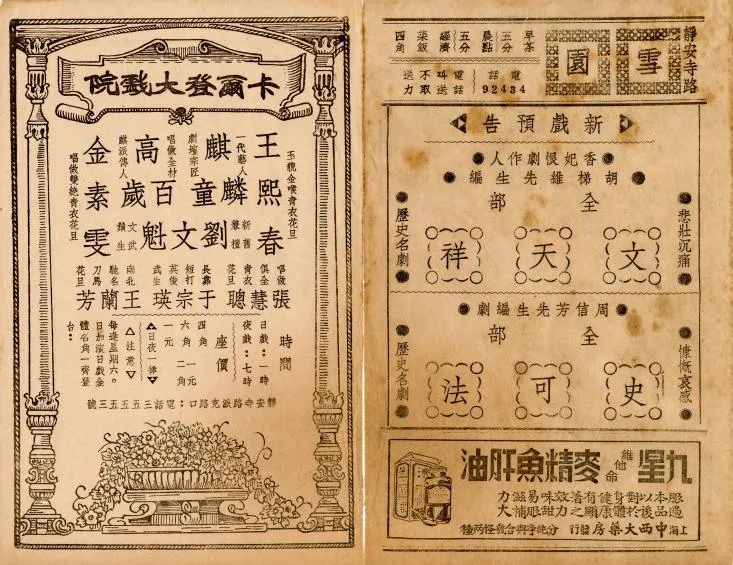 靜安寺路
雪園
早茶五分
晨點五分
經濟菜飯四角
電話
92434
電話叫送
不取送力
新戲預告
香妃恨劇作人
胡梯維先生編
悲壯沉痛
全部
文天祥
歷史名劇
周信芳先生編劇
慷慨哀感
全部
史可法
歷史名劇
九星維他命麥精魚肝油
服過本品以後對於身體健康有顯著之效力味甜易服滋補力大
上海中西大藥房發行
卡爾登大戲院
玉貌金喉青衣花旦
王熙春
一代藝人
劇壇宗匠
麒麟童
唱做全材
麒派傳人
高百歲
唱做雙絕青衣花旦
金素雯
新舊兼擅
劉文魁
文武鬚生
唱做俱全
青衣花旦
張慧聰
長靠短打
英俊武生
于宗瑛
南北馳名
刀馬花旦
王蘭芳
時間
日戲：一時
夜戲：七時
座價
四角
六角
一元
一元二角
日夜一律
注意
每逢星期六。
日加演日戲全
體名角一齊登
台：
靜安寺路派克路口：電話三五五五三號